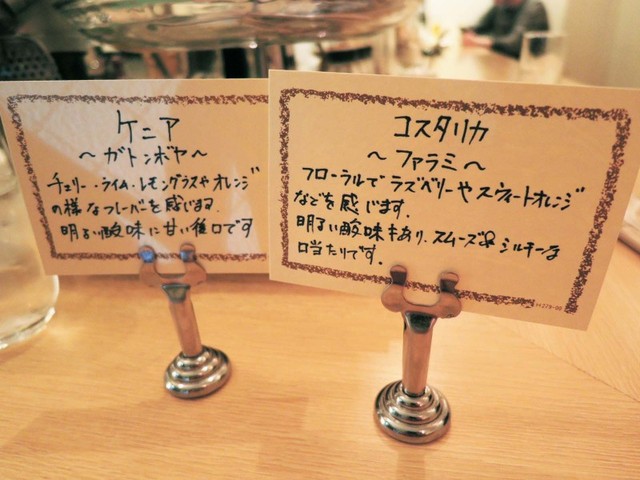 ケニア
～ガトンボヤ～
チェリー・ライム・レモングラスやオレンジ
の様なフレーバーを感じます。
明るい酸味に甘い後口です
コスタリカ
～ファラミ～
フローラルでラズベリーやスウィートオレンジ
などを感じます。
明るい酸味もあり、スムーズ&シルキーな
口当たりです。